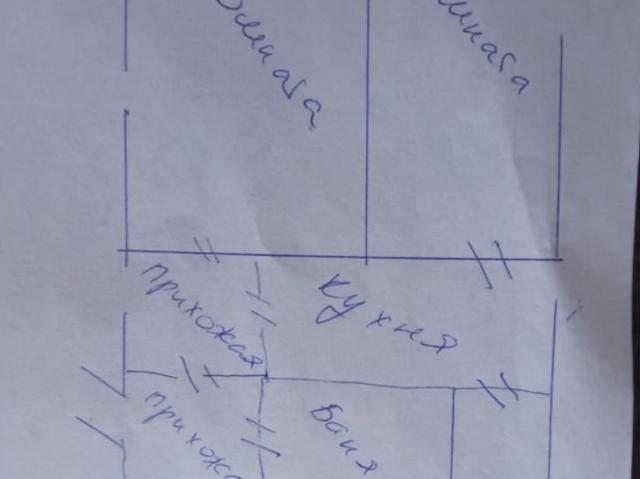 омната
мната
прихожая
кухня
прихожа
Баня